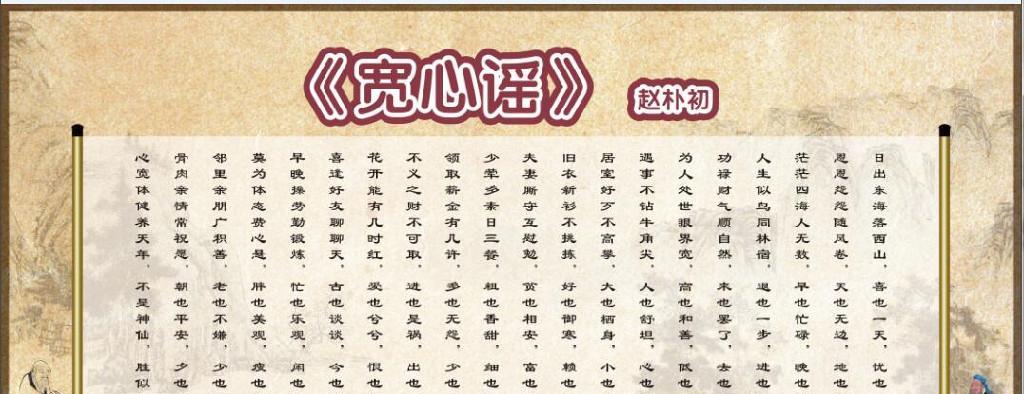 《宽心谣》 赵朴初
日出东海落西山，喜也一天，忧也
恩恩怨怨随风卷，天也无边，地也
茫茫四海人无数，早也忙碌，晚也
人生似鸟同林宿，退也一步，进也
功禄财气顺自然，来也罢了，去也
为人处世眼界宽，高也和善，低也
遇事不钻牛角尖，人也舒坦，心也
居室好歹不高攀，大也栖身，小也
旧衣新衫不挑拣，好也御寒，赖也
夫妻厮守互慰勉，贫也相安，富也
少荤多素日三餐，粗也香甜，细也
领取薪金有几许，多也无怨，少也
不义之财不可取，进也是祸，出也
花开能有几时红，爱也兮兮，恨也
喜逢好友聊聊天，古也谈谈，今也
早晚操劳勤锻炼，忙也乐观，闲也
莫为体态费心思，胖也美观，瘦也
邻里亲朋广积善，老也不嫌，少也
骨肉亲情常祝愿，朝也平安，夕也
心宽体健养天年，不是神仙，胜似